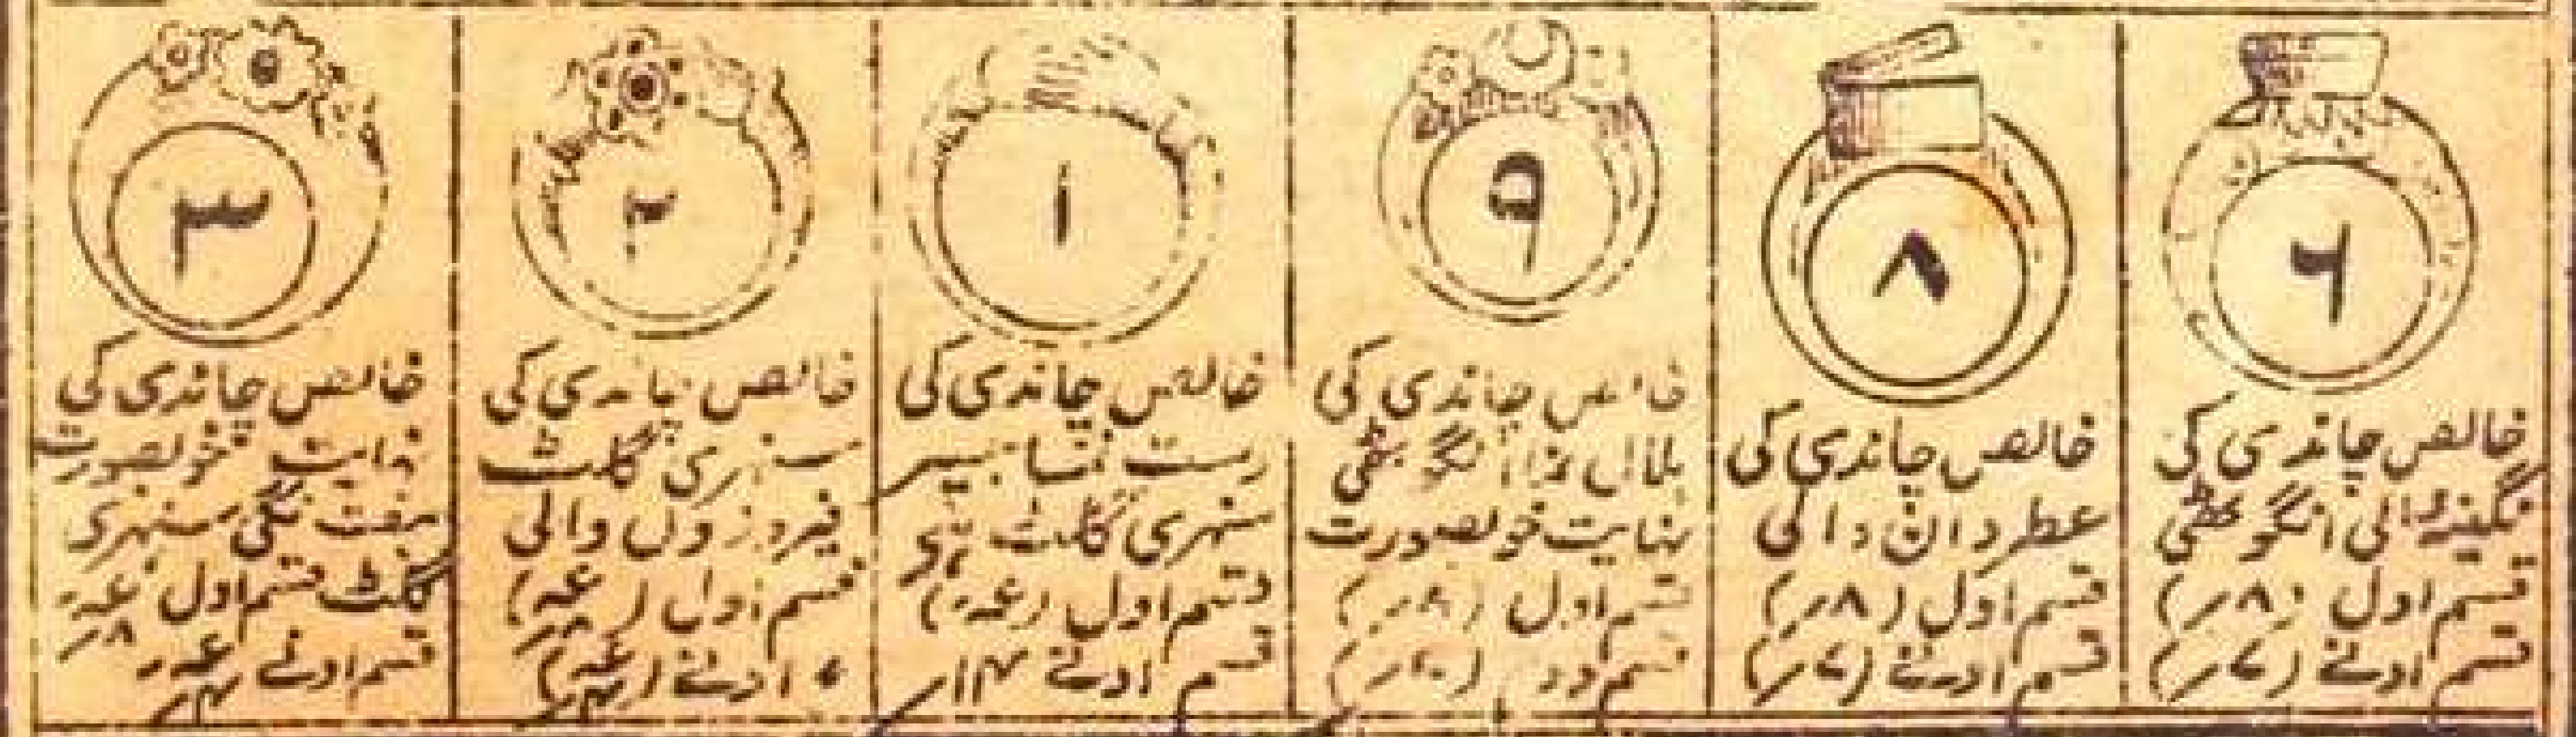 ۶
خالص چاندی کی
نگینہ والی انگوٹھی
قسم اول (۸؍)
قسم ادنےٰ (۷؍)
۸
خالص چاندی کی
عطردان والی
قسم اول (۸؍)
قسم ادنےٰ (۷؍)
۹
خالص چاندی کی
ہلال نما انگوٹھی
نہایت خوبصورت
قسم اول (۸؍)
قسم دو
۱
خالص چاندی کی
دست
سنہری گلٹ
قسم اول (عہ)
قسم ادنےٰ ۱۴؍
۲
خالص چاندی کی
سنہری گلٹ
فیروزوں والی
قسم اول (عہ ۸؍)
ادنےٰ (عہ ۴؍)
۳
خالص چاندی کی
نہایت خوبصورت
ہفت نگی سنہری
گلٹ قسم اول عہ ۸؍
قسم ادنےٰ عہ ۴؍